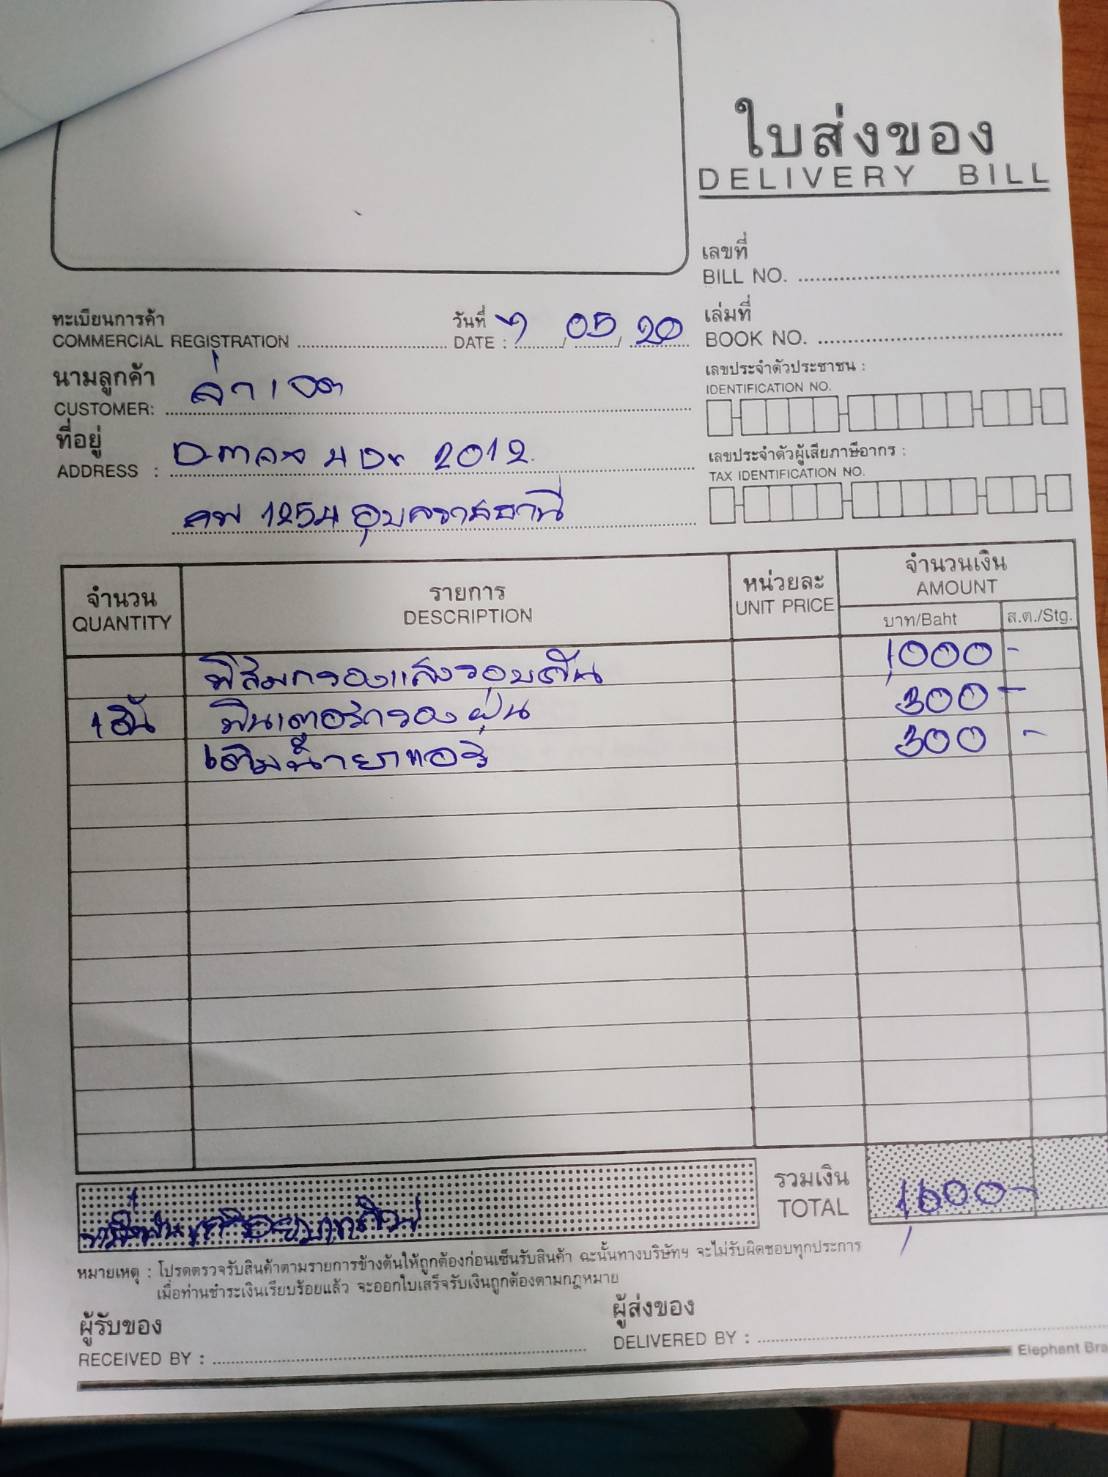 ใบส่งของ
DELIVERY BILL
เลขที่
BILL NO.
ทะเบียนการค้า
COMMERCIAL REGISTRATION
วันที่ 7 05 20
DATE :
เล่มที่
BOOK NO.
นามลูกค้า
CUSTOMER:
เลขประจำตัวประชาชน :
IDENTIFICATION NO.
ที่อยู่ 2012
ADDRESS :
เลขประจำตัวผู้เสียภาษีอากร :
TAX IDENTIFICATION NO.
1254 อุบลราชธานี
จำนวน รายการ หน่วยละ จำนวนเงิน
QUANTITY DESCRIPTION UNIT PRICE AMOUNT
บาท/Baht ส.ต./Stg.
ฟิล์มกรองแสงรอบคัน 1000 -
1 อัน ฟินเตอร์กรองฝุ่น 300 -
เติมน้ำยาแอร์ 300 -
รวมเงิน
TOTAL 1600 -
หมายเหตุ : โปรดตรวจรับสินค้าตามรายการข้างต้นให้ถูกต้องก่อนเซ็นรับสินค้า ฉะนั้นทางบริษัทฯ จะไม่รับผิดชอบทุกประการ
เมื่อท่านชำระเงินเรียบร้อยแล้ว จะออกใบเสร็จรับเงินถูกต้องตามกฎหมาย
ผู้รับของ
RECEIVED BY :
ผู้ส่งของ
DELIVERED BY :
Elephant Bra